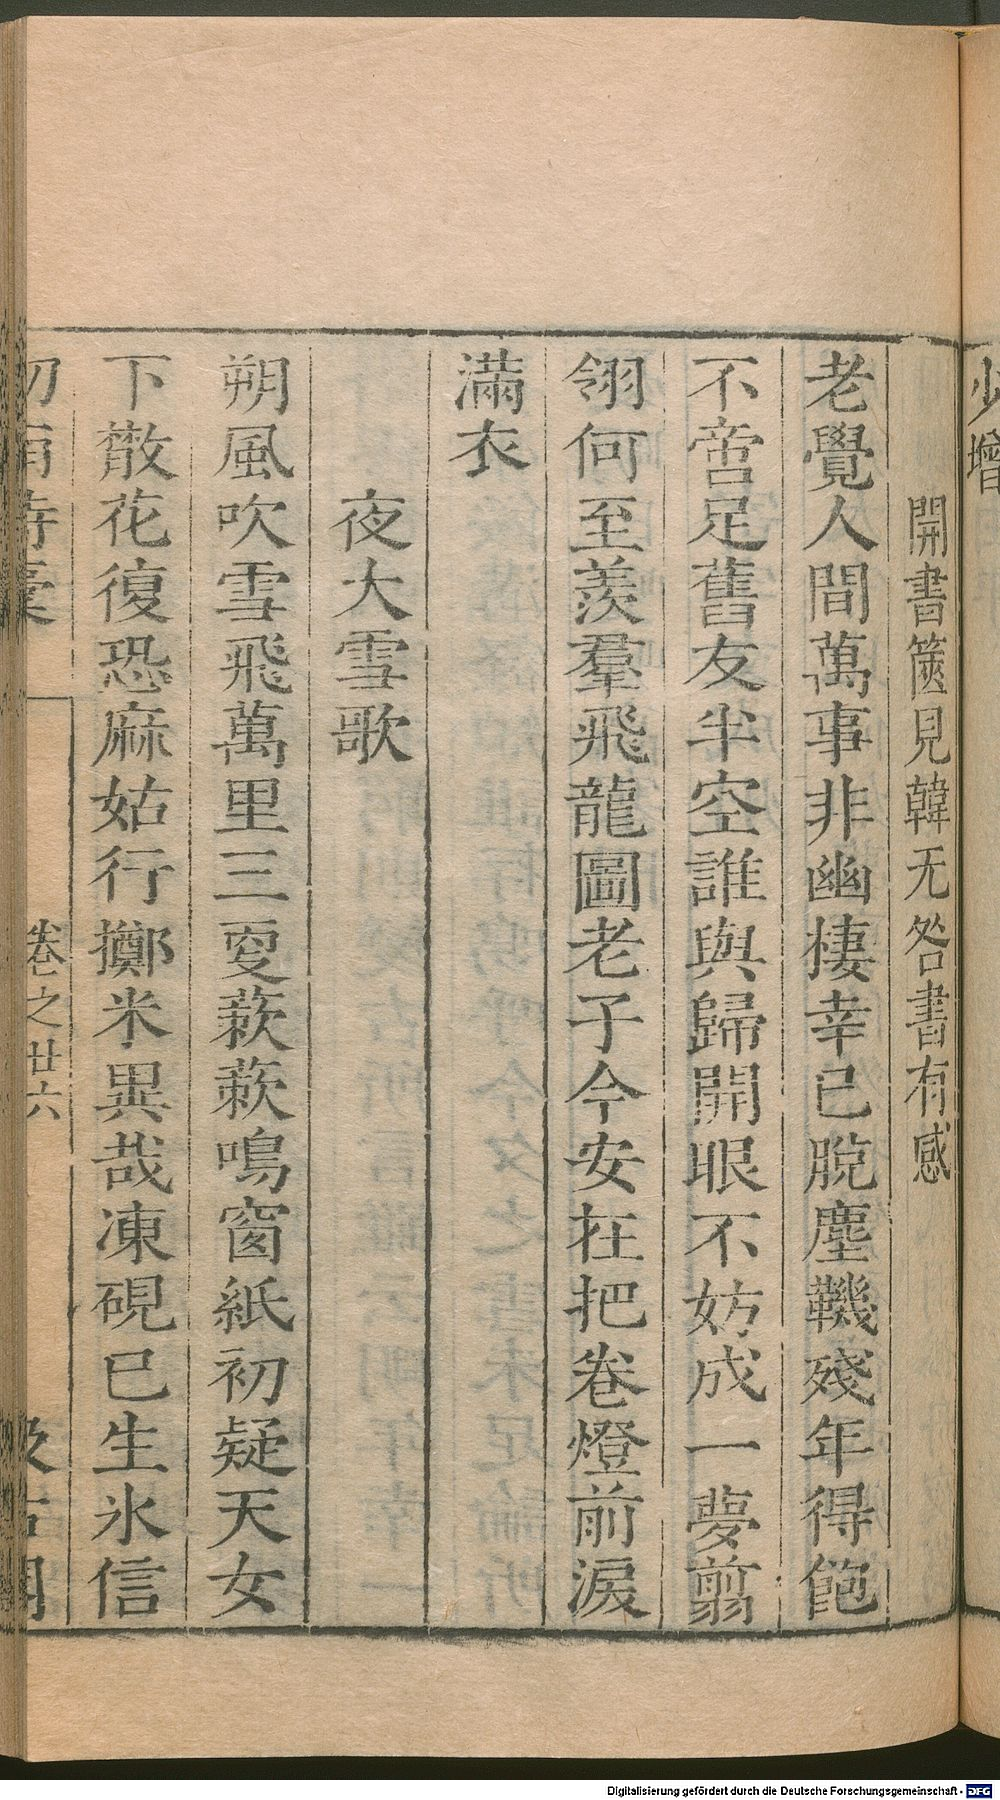 少增
開書篋見韓无咎書有感
老覺人間萬事非幽棲幸已脫塵鞿殘年得飽
不啻足舊友半空誰與歸開眼不妨成一夢翦
翎何至羨羣飛龍圖老子今安在把卷燈前淚
滿衣
夜大雪歌
朔風吹雪飛萬里三更蔌蔌鳴窗紙初疑天女
下散花復恐麻姑行擲米異哉凍硯已生氷信
卷之廿六
Digitalisierung gefördert durch die Deutsche Forschungsgemeinschaft - DFG